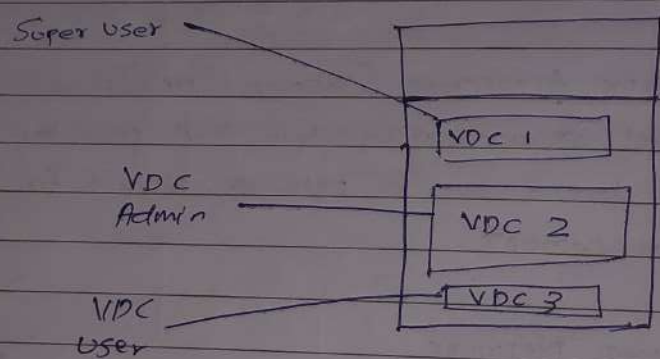 Super user
VDC 1
VDC
Admin
VDC 2
VDC
User
VDC 3